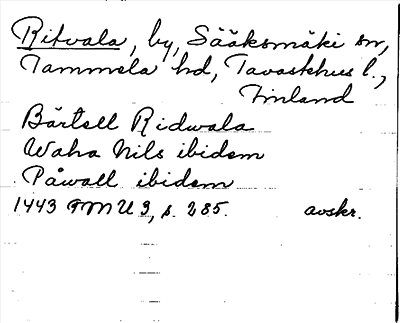 Ritvala, by, Sääksmäki sn,
Tammela hd, Tavastehus l.,
Finland
Bärtell Ridwala
Waha Nils ibidem
Påwall ibidem
1443 FMU 3, s. 285. avskr.